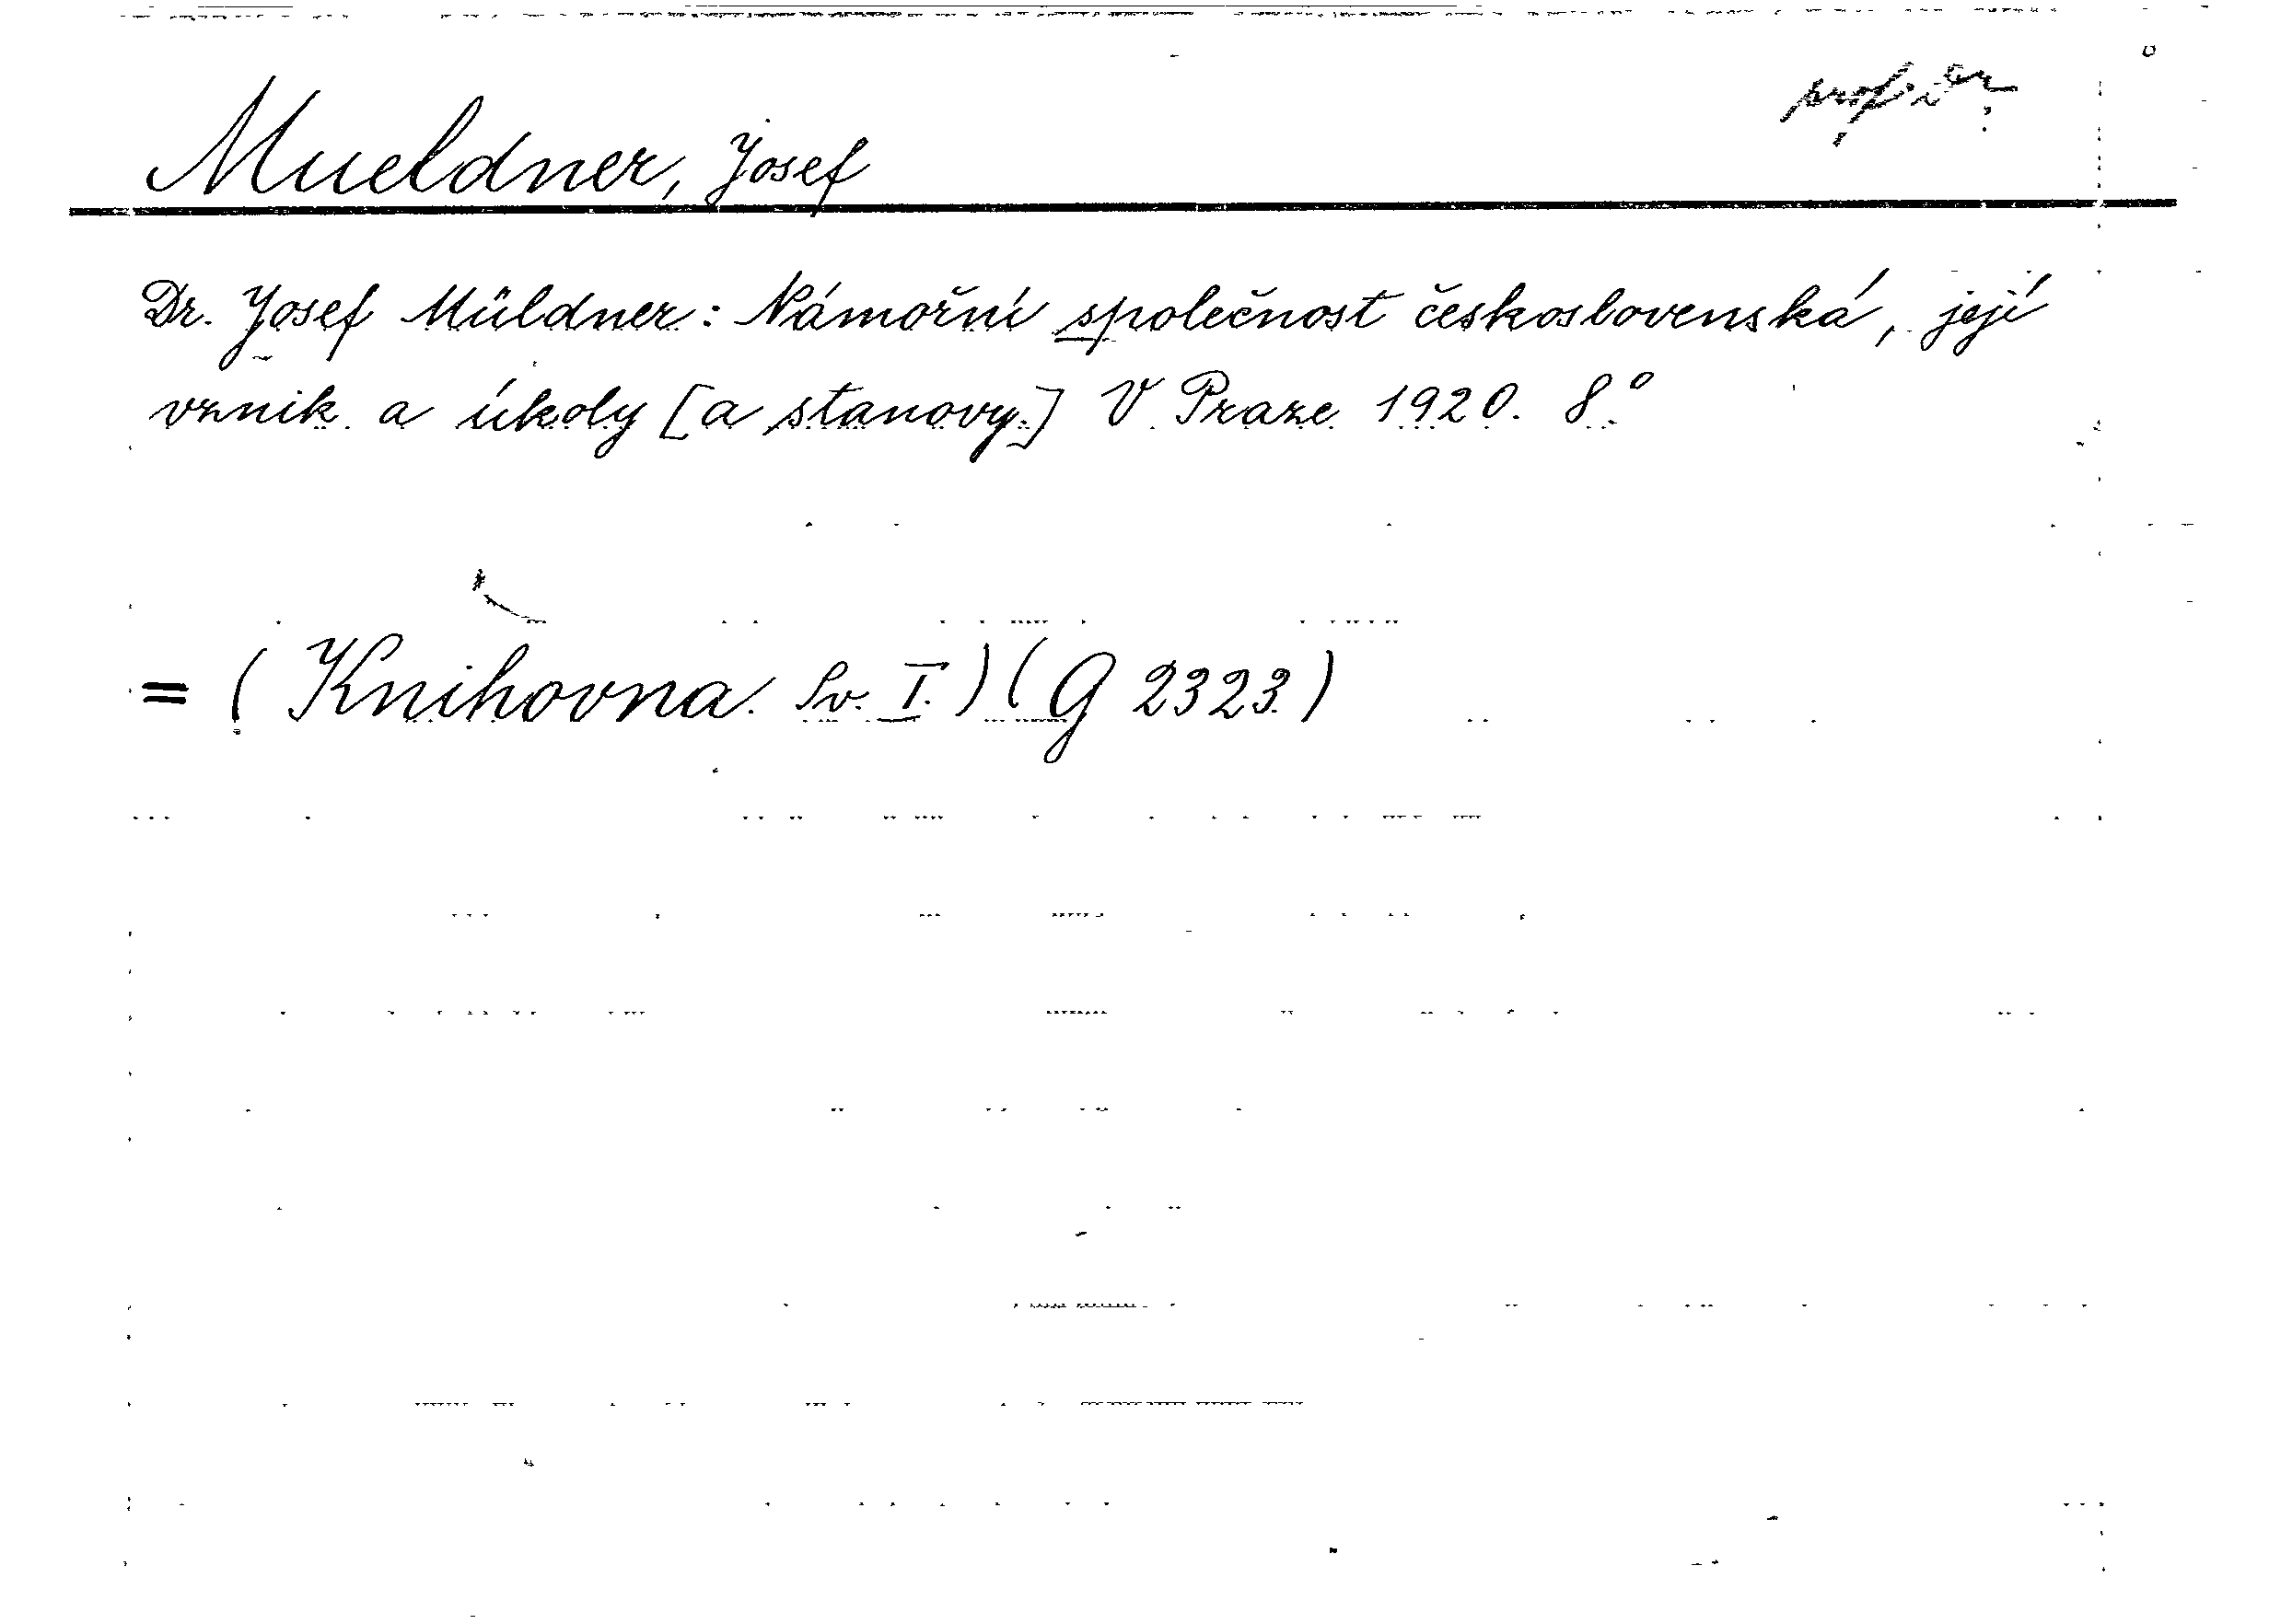 Mueldner, Josef
Dr. Josef Müldner: Námořní společnost československá, její
vznik a úkoly [a stanovy.] V Praze 1920. 8°
= (Knihovna. Sv. I.) (G 2323)